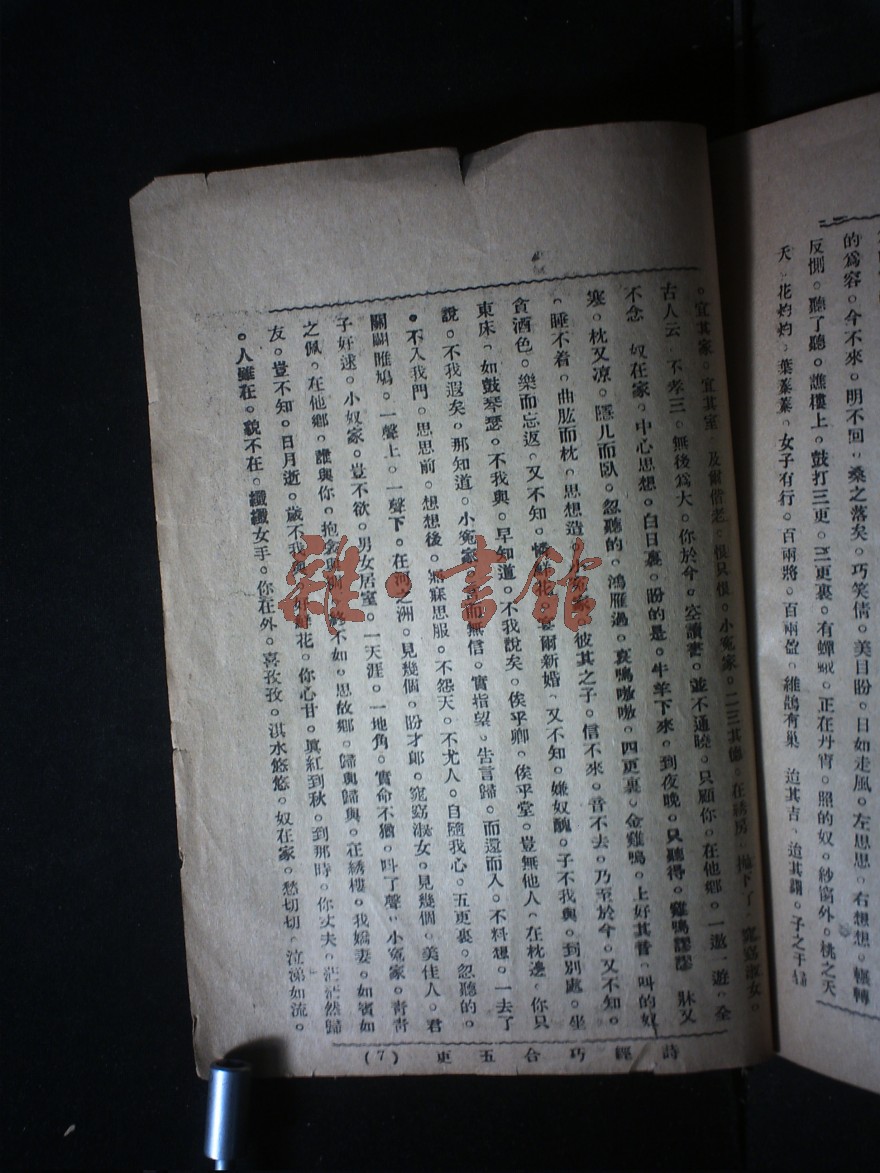 的為容。今不來。明不回。桑之落矣。巧笑倩。美目盼。日如走風。左思思。右想想。輾轉
反惻。聽了聽。譙樓上。鼓打三更。三更裏。有蟬娥。正在丹霄。照的奴。紗窗外。桃之夭
夭。花灼灼。葉蓁蓁。女子有行。百兩將。百兩盈。維鵲有巢 迨其吉。迨其謂。子之于歸
。宜其家。宜其室 及爾偕老。恨只恨。小冤家。二三其德。在綉房。拋下了。窈窕淑女。
古人云。不孝三。無後為大。你於今。空讀書。並不通曉。只顧你。在他鄉。一遨一遊。全
不念 奴在家。中心思想。白日裏。盼的是。牛羊下來。到夜晚。只聽得。雞鳴膠膠 牀又
寒。枕又凉。隱几而臥。忽聽的。鴻雁過。哀鳴嗷嗷。四更裏。金雞鳴。上好其音。叫的奴
。睡不着。曲肱而枕。思想遣 小冤家。彼其之子。信不來。音不去。乃至於今。又不知。
貪酒色。樂而忘返。又不知。憐鮮花。宴爾新婚。又不知。嫌奴醜。子不我與。到別處。坐
東床。如鼓琴瑟。不我與。早知道。不我說矣。俟乎卿。俟乎堂。豈無他人。在枕邊。你只
說。不我遐矣。那知道。小冤家。言而無信。實指望。告言歸。而還而入。不料想。一去了
。不入我門。思思前。想想後。寤寐思服。不怨天。不尤人。自隨我心。五更裏。忽聽的。
關關雎鳩。一聲上。一聲下。在河之洲。見幾個。盼才郎。窈窕淑女。見幾個。美佳人。君
子好逑。小奴家。豈不欲。男女居室。一天涯。一地角。實命不猶。叫了聲。小冤家。青青
之佩。在他鄉。誰與你。抱衾與裯。終不如。思故鄉。歸與歸與。在綉樓。我嬌妻。如賓如
友。豈不知。日月逝。歲不我與。好鮮花。你心甘。眞紅到秋。到那時。你丈夫。茫茫然歸
。人雖在。貌不在。纖纖女手。你在外。喜孜孜。淇水悠悠。奴在家。愁切切。泣涕如流。
詩經巧合五更 (7)
雜·書館